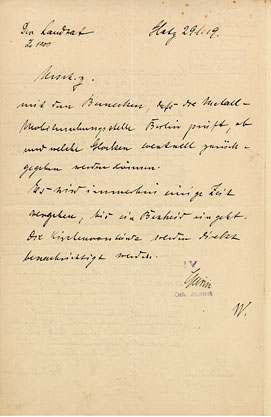 Der Landrat
Glatz 29.1.19.
mit dem Bemerken, daß die Metall-
Mobilmachungsstelle Berlin prüft, ob
und welche Glocken eventuell zurück-
gegeben werden können.
Es wird immerhin einige Zeit
vergehen, bis ein Bescheid eingeht.
Die Kirchenvorstände werden direkt
benachrichtigt werden.
W.